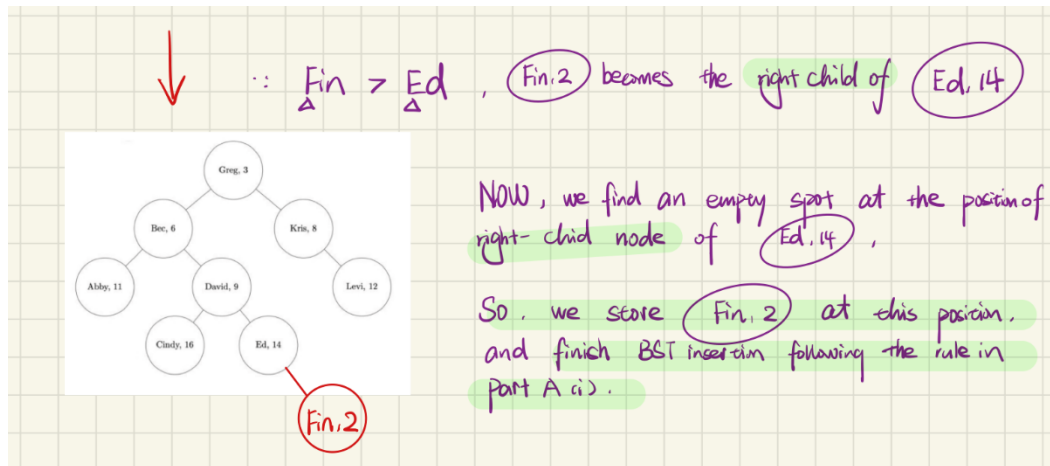 ∵ Fin > Ed , Fin,2 becomes the right child of Ed, 14
Greg, 3
Bec, 6
Kris, 8
Abby, 11
David, 9
Levi, 12
Cindy, 16
Ed, 14
Fin,2
NOW, we find an empty spot at the position of
right-chid node of Ed, 14 ,
So, we store Fin, 2 at this position.
and finish BST insertion following the rule in
part A (i).